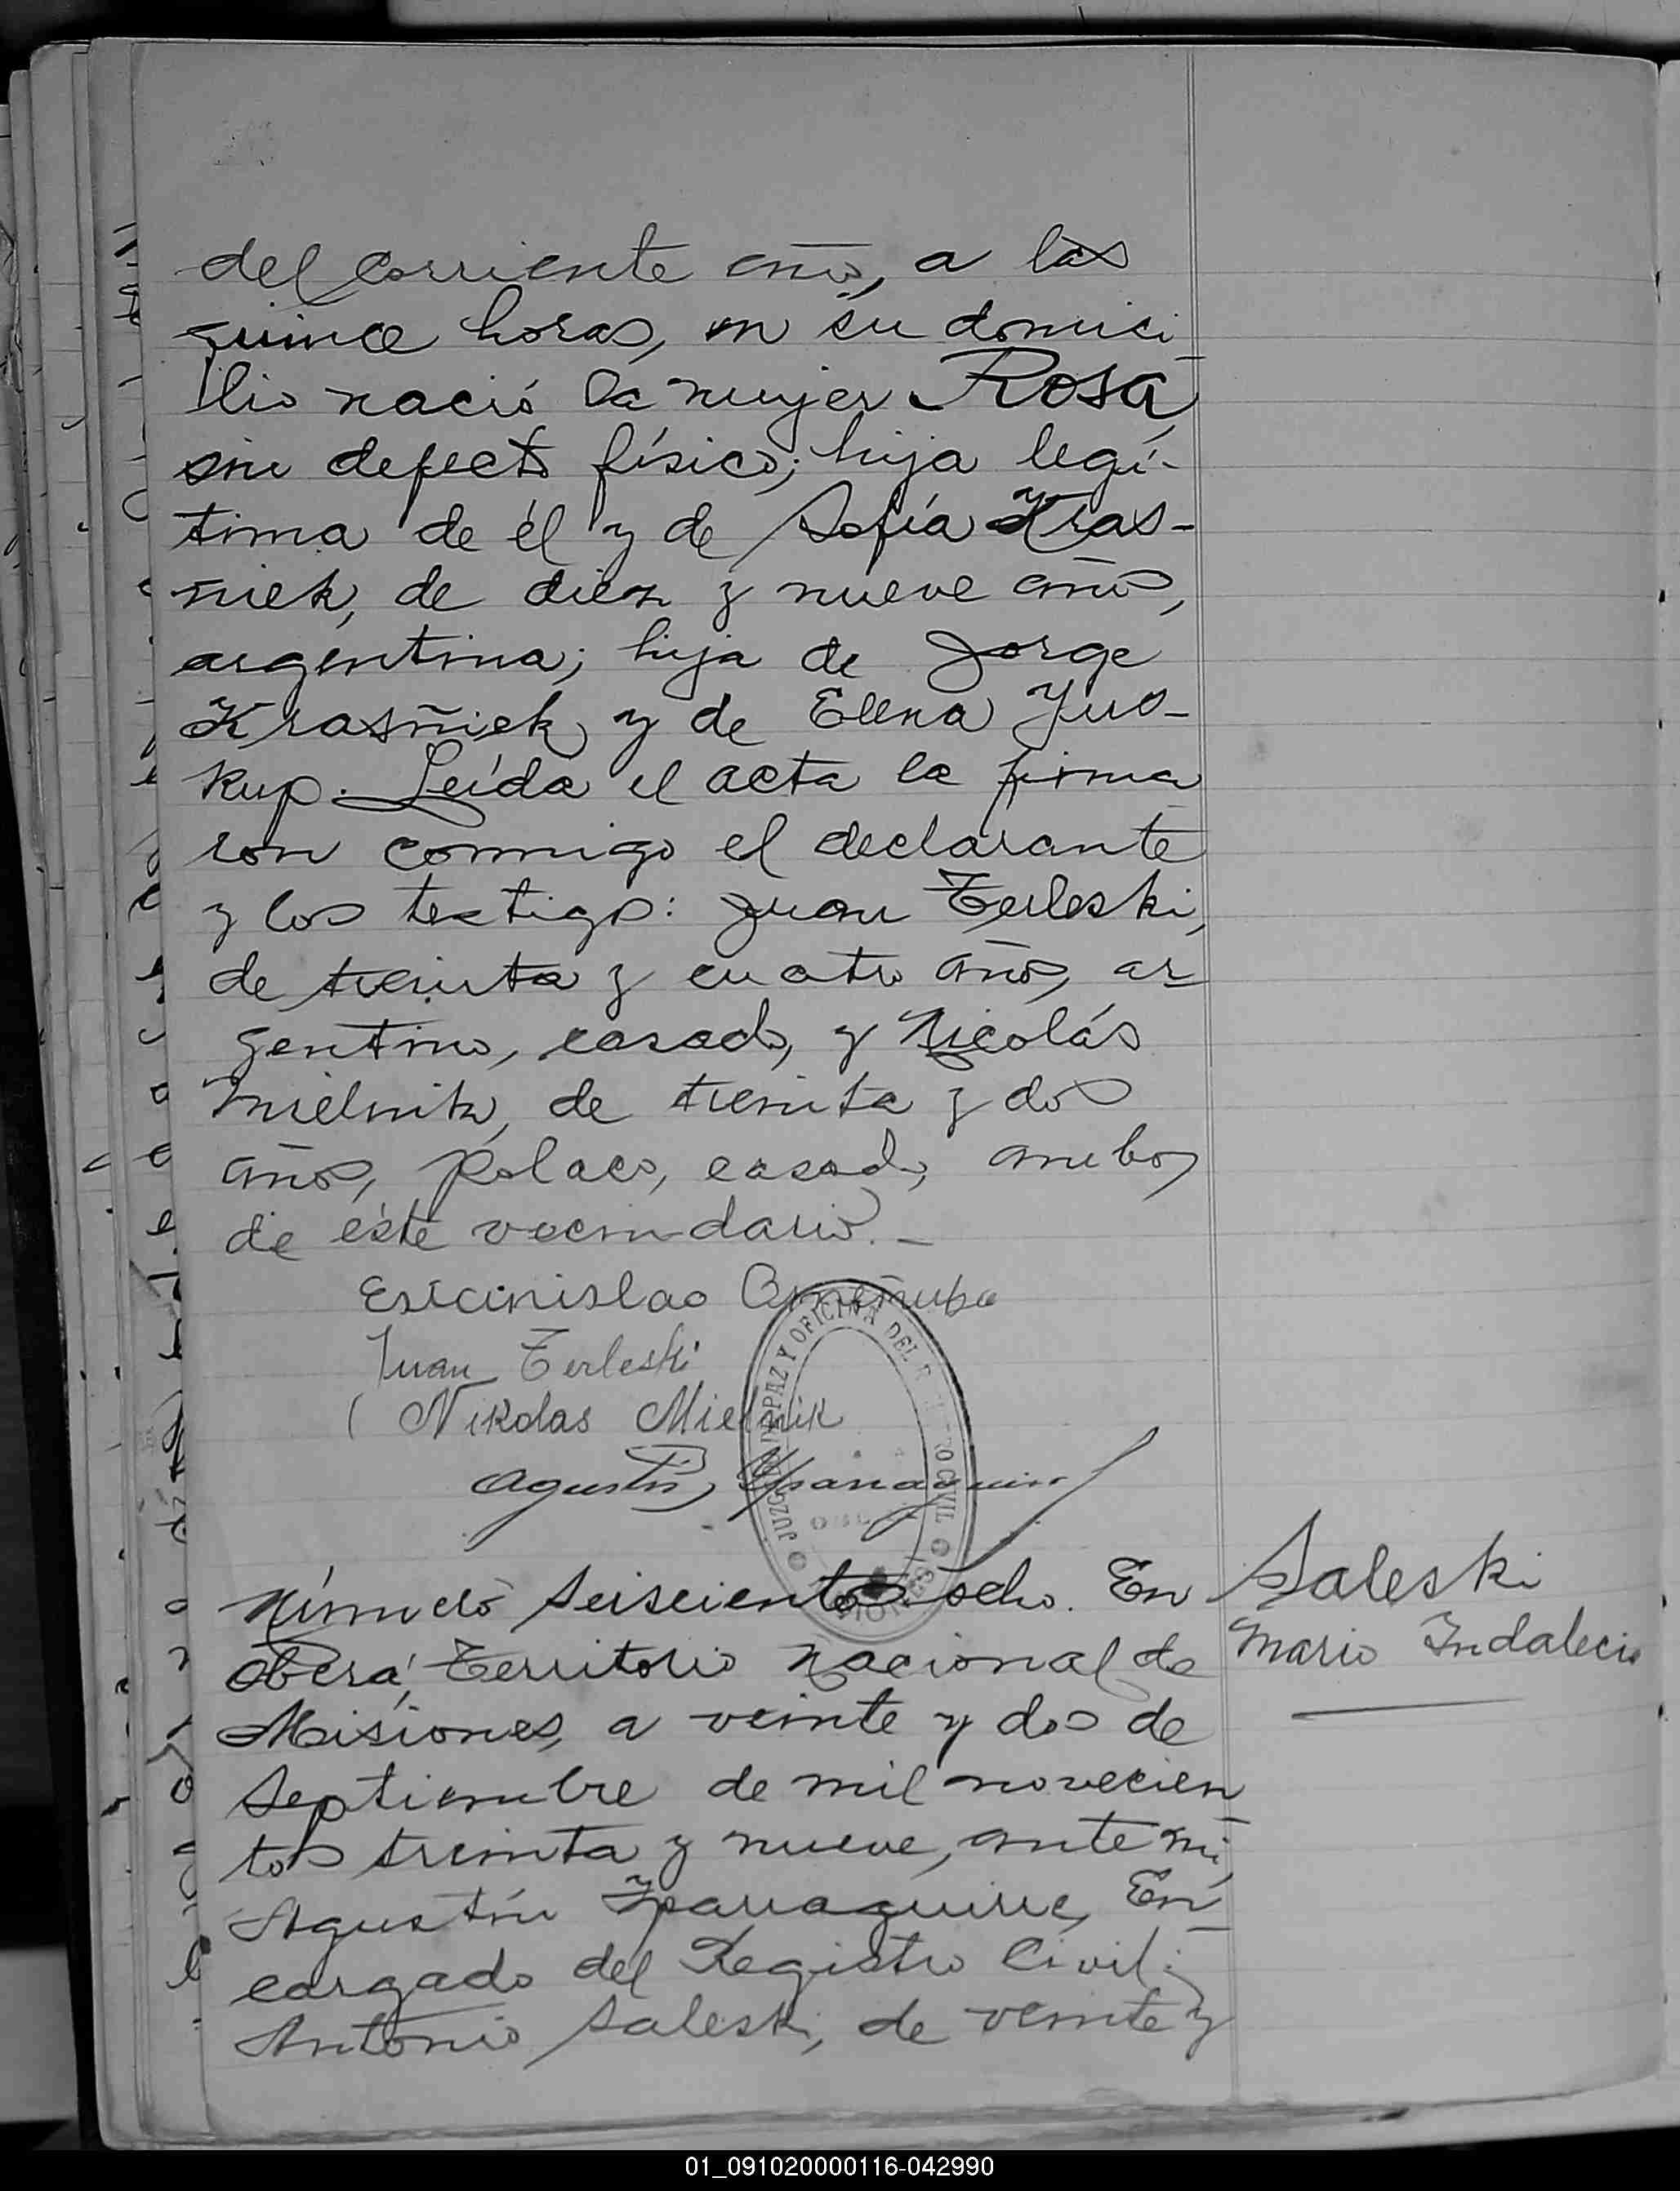 del corriente año, a las
quince horas, en su domici
lio nació la mujer Rosa,
sin defecto físico; hija legí-
tima de él y de Sofía Kras-
ñiek, de diez y nueve años,
argentina; hija de Jorge
Krasñiek y de Elena Yus-
kup. Leída el acta la firma
ron conmigo el declarante
y los testigos: Juan Terleski,
de treinta y cuatro años, ar
gentino, casado, y Nicolás
Mielnik, de treinta y dos
años, polaco, casado, ambos
de éste vecindario.-
Juan Terleski
Nikolas Mielnik
Agustín Yparraguirre
JUZGADO DE PAZ Y OFICINA DEL REGISTRO CIVIL
Número seiscientos ocho. En
Oberá, Territorio Nacional de
Misiones, a veinte y dos de
Septiembre de mil novecien
tos treinta y nueve, ante mí,
Agustín Yparraguirre, En
cargado del Registro Civil:
Antonio Saleski, de veinte y
Saleski
Mario Indalecio
01_091020000116-042990